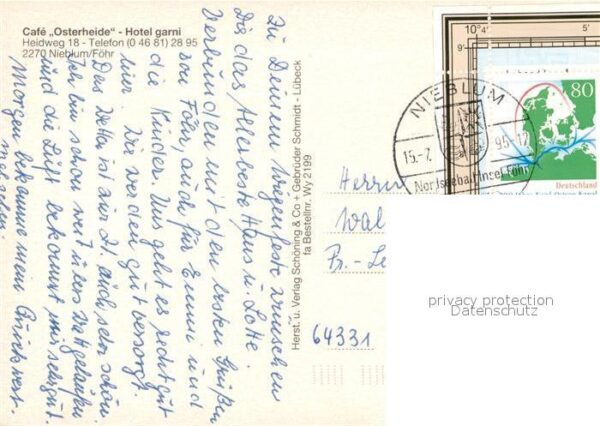 Café „Osterheide" - Hotel garni
Heidweg 18 - Telefon (0 46 81) 28 95
2270 Nieblum/Föhr
Zu Deinem Wiegenfeste wünschen
Dir das Allerbeste Hans u. Lotte.
Verbunden mit den besten Grüßen
von Föhr, auch für Emmi und
die Kinder. Uns geht es recht gut
hier. Wir werden gut versorgt.
Das Wetter ist z.Zt. auch sehr schön
Ich bin schon weit übers Watt gelaufen
und die Luft bekommt mir sehr gut.
Morgen bekomme mein
Herst. u. Verlag Schöning & Co + Gebrüder Schmidt - Lübeck
fa Bestellnr. Wy 2199
10°4'
5'
9'
80
Deutschland
NIEBLUM
15.-7.
95-12
Nordseebad Insel Föhr
Herrn
Wal
Fr.-Le
64331
privacy protection
Datenschutz